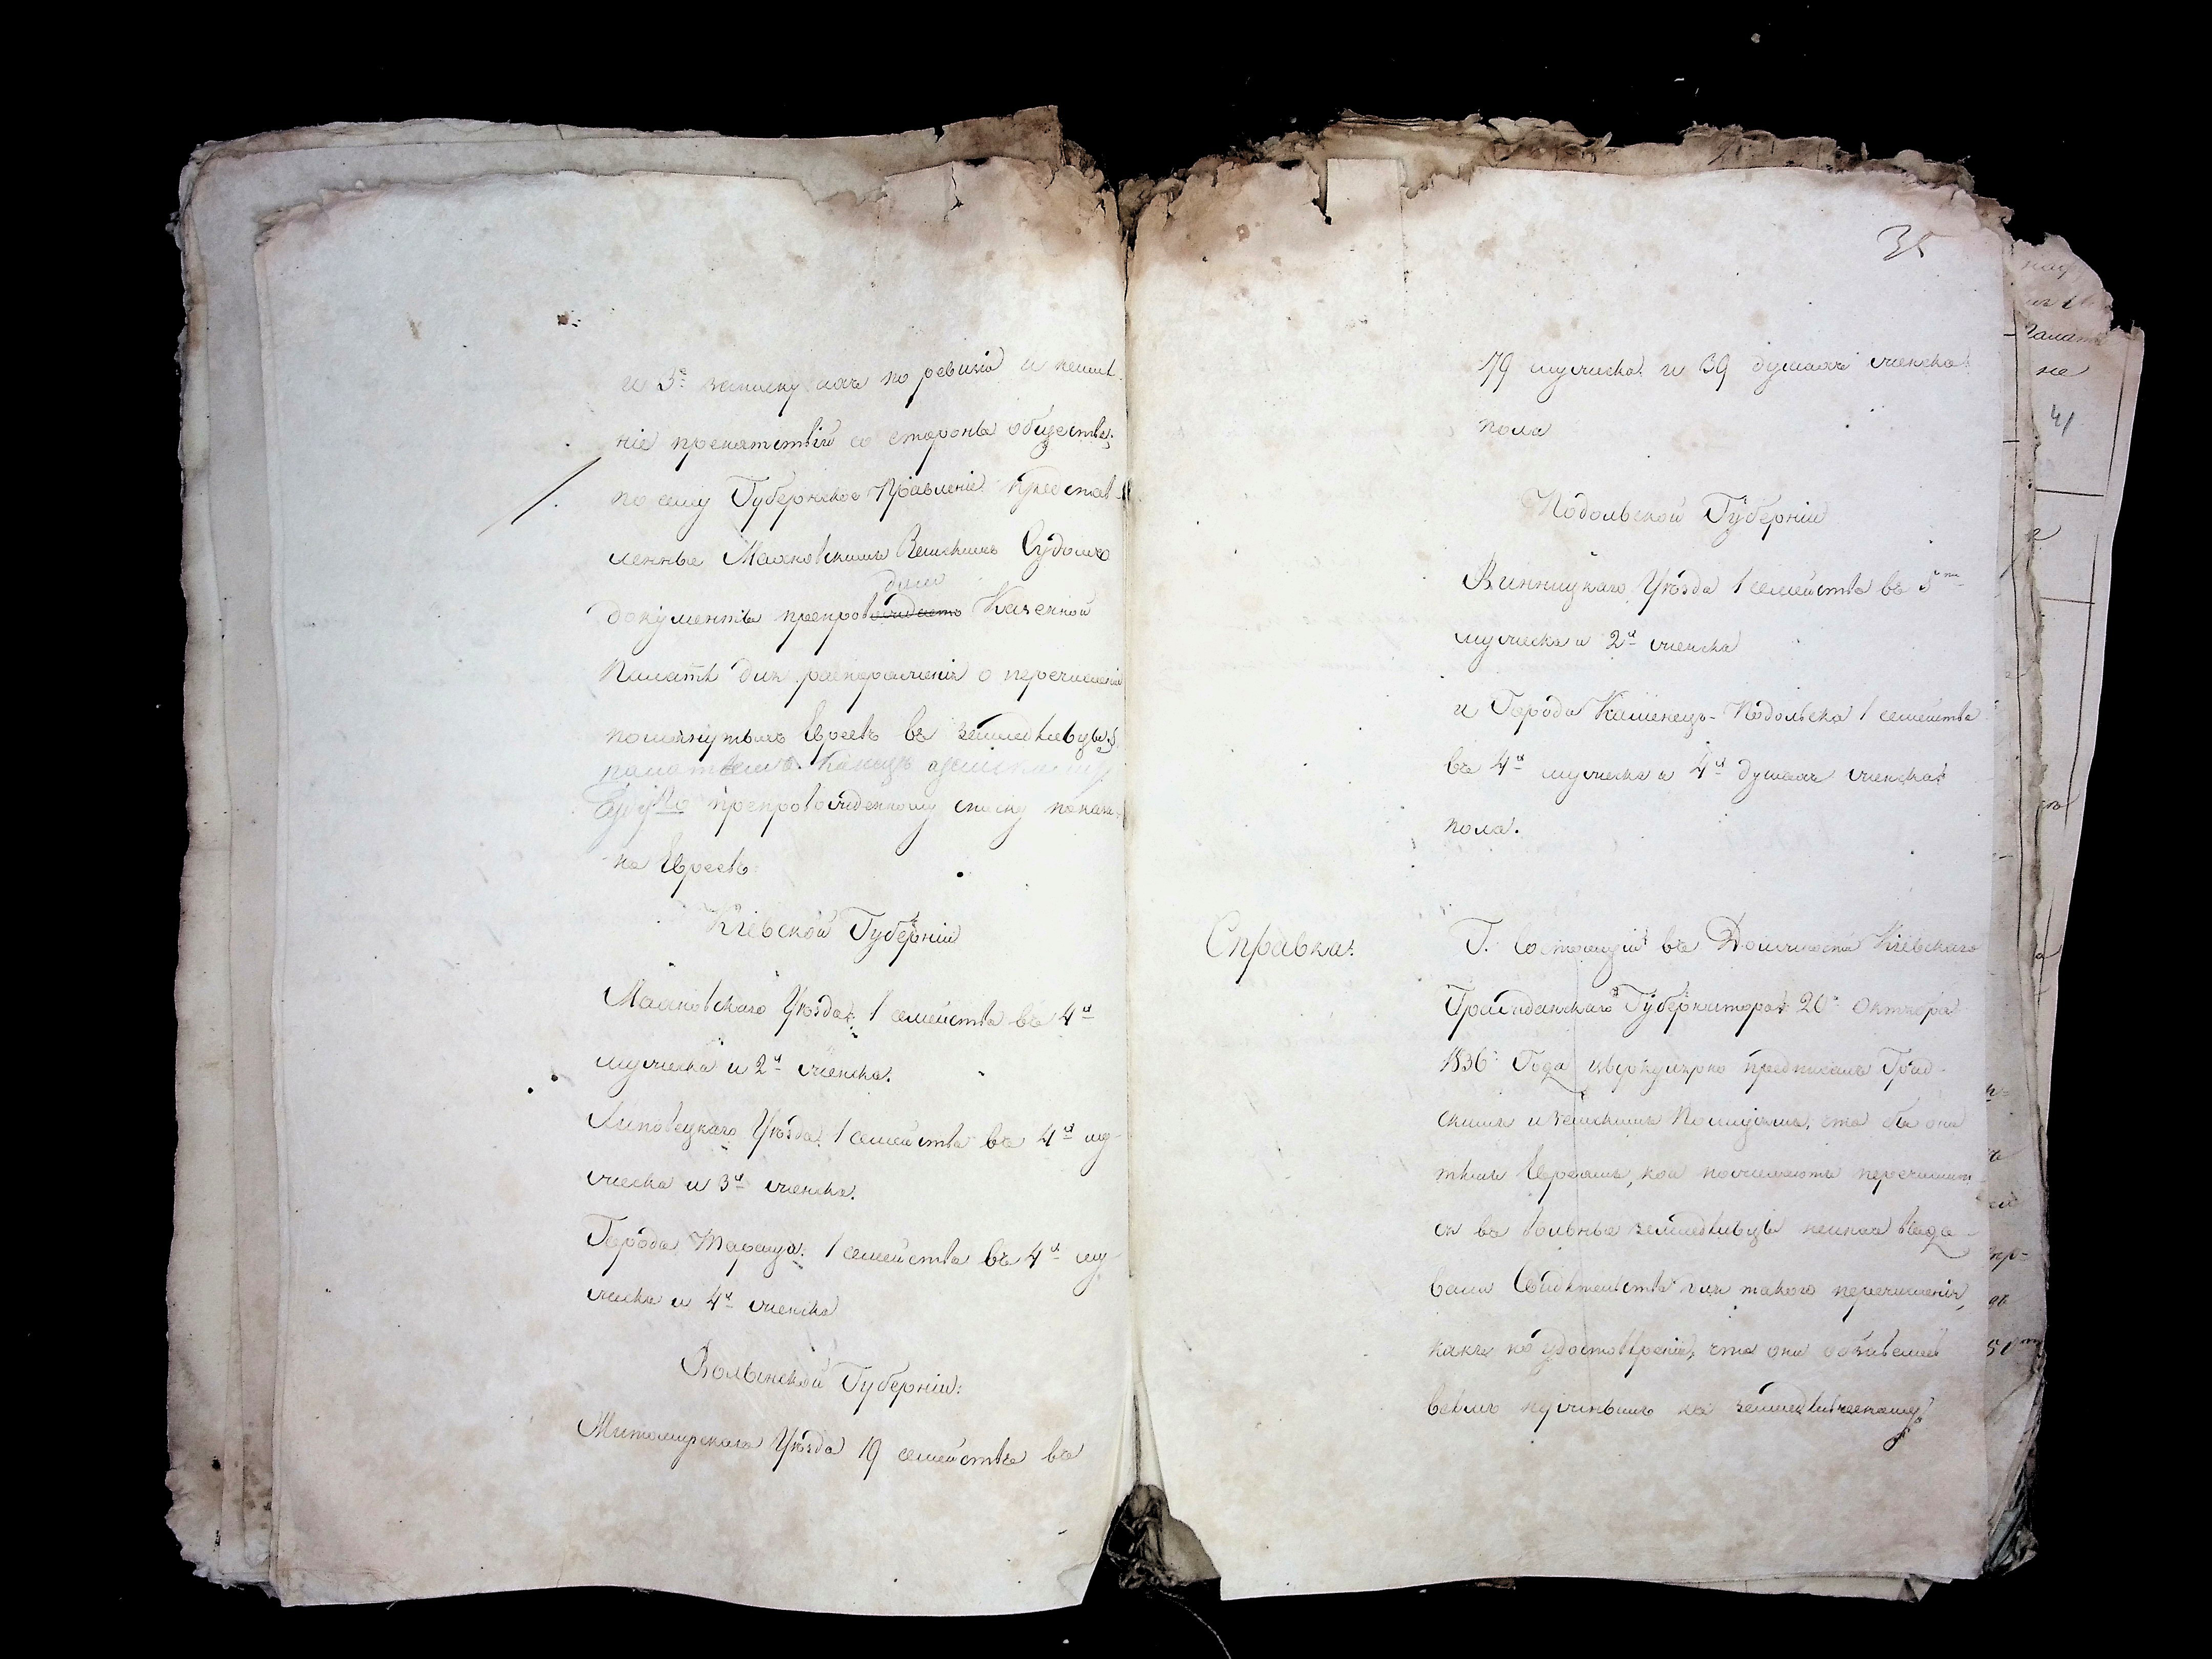 и 3е записку ихъ по ревизіи и неимѣ-
ніе препятствій со стороны общества;
по сему Губернское Правленіе Представ-
ленные Махновскимъ Земскимъ Судомъ
дило
документы препровождаето Казенной
Палатѣ для распоряженія о перечисленіи
помянутыхъ Евреевъ въ земледѣльцы;
По препровожденному списку показа-
но Евреевъ
Кіевской Губерніи
Махновскаго Уѣзда: 1 семейство въ 4хъ
мужеска и 2хъ женска.
Липовецкаго Уѣзда: 1 семейство въ 4хъ му-
жеска и 3хъ женска.
Города Таращи: 1 семейство въ 4хъ му-
жеска и 4хъ женска
Волынской Губерніи:
Житомирскаго Уѣзда 19 семействъ въ
35
79 мужеска и 39 душахъ женска
пола
Подольской Губерніи
Винницкаго Уѣзда 1 семейство въ 5ти
мужеска и 2хъ женска
и Города Каменецъ-Подольска 1 семейство
въ 4хъ мужеска и 4хъ душахъ женска
пола.
Справка:
Г. Состоящій въ Должности Кіевскаго
Гражданскаго Губернатора 20 Октября
1836 Года циркулярно предписалъ Град-
скимъ и земскимъ Полиціямъ, что бы они
тѣмъ Евреямъ, кои пожелаютъ перечислит
ся въ вольные земледѣльцы неиначе выда-
вали Свидѣтельства для такого перечисленія,
какъ по удостовѣреніи, что они обзавелись
всѣмъ нужнымъ къ земледѣльческому